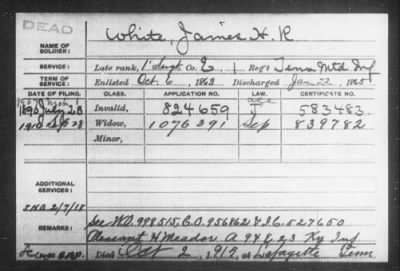 DEAD
White, James H. R
NAME OF SOLDIER:
SERVICE: Late rank, 1" Sergt Co. E Reg't Tenn Mtd Inf
TERM OF SERVICE: Enlisted Oct. 6, 1863 Discharged Jan 22, 1865
DATE OF FILING. CLASS. APPLICATION NO. LAW. CERTIFICATE NO.
1890 July 23 Invalid, 824659 J 583483.
1919 Sep 28 Widow, 1076391 Sep 839782
Minor,
ADDITIONAL SERVICES:
REMARKS: See W.O. 998515, C.O. 956862 & I.C. 527650
Pleasant H Meador A 9 & E, 23 Ky Inf
Died Oct 2, 1919, at Lafayette Tenn